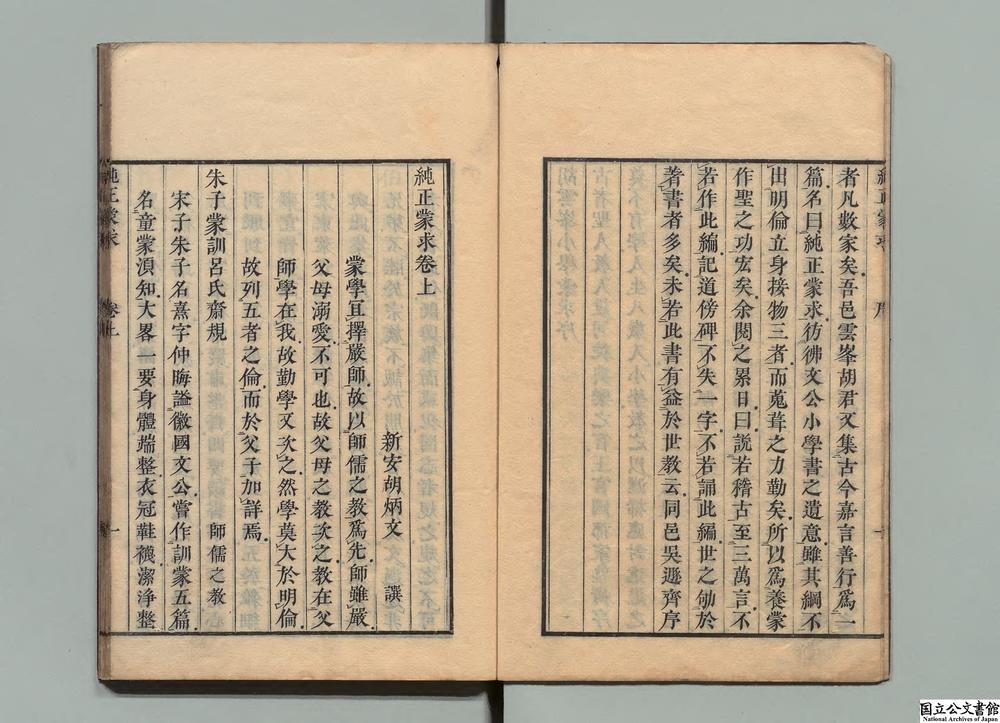 純正蒙求 序
者凡數家矣吾邑雲峯胡君又集古今嘉言善行爲一
篇名曰純正蒙求彷彿文公小學書之遺意雖其綱不
出明倫立身接物三者而蒐葺之力勤矣所以爲養蒙
作聖之功宏矣余閱之累日曰説若稽古至三萬言不
若作此編記道傍碑不失一字不若誦此編世之劬於
著書者多矣未若此書有益於世教云同邑吳遜齊序
純正蒙求卷上
新安胡炳文 譔
蒙學冝擇嚴師故以師儒之教爲先師雖嚴
父母溺愛不可也故父母之教次之教在父
師學在我故勤學又次之然學莫大於明倫
故列五者之倫而於父子加詳焉
朱子蒙訓呂氏齋規 師儒之教
宋子朱子名熹字仲晦謚徽國文公嘗作訓蒙五篇
名童蒙湏知大畧一要身體端整衣冠鞋襪潔淨整
純正蒙求 卷上 一
国立公文書館
National Archives of Japan